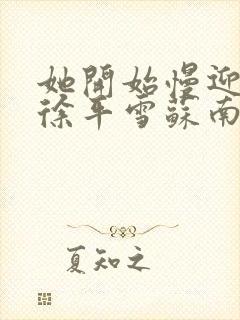 她開始慢迎
徐平雪蘇南
夏知之